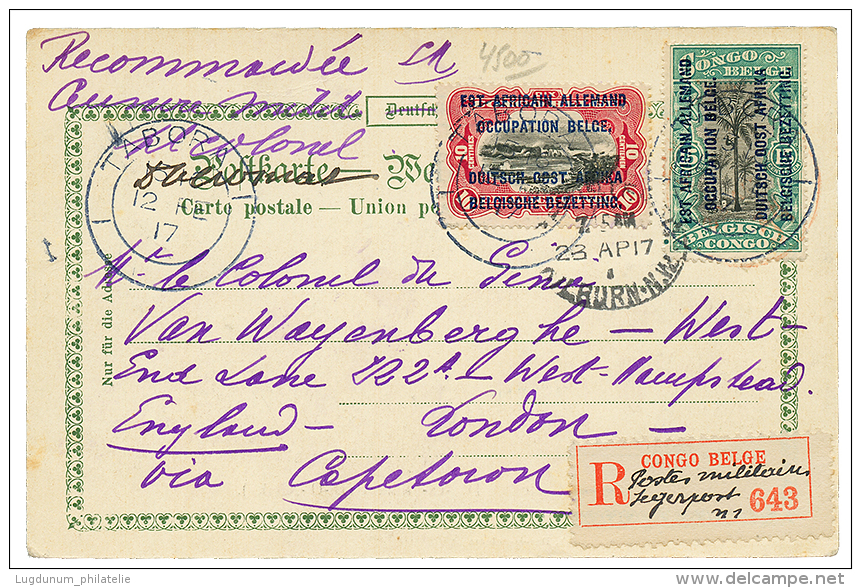 Recommandée
4500
Deutsch
TABORA
12
17
Postkarte
Carte postale — Union po
Nur für die Adresse
EST. AFRICAIN. ALLEMAND.
OCCUPATION BELGE.
DUITSCH OOST AFRIKA
BELGISCHE BEZETTING.
10
10
EST. AFRICAIN ALLEMAND.
OCCUPATION BELGE.
DUITSCH OOST AFRIKA
BELGISCHE BEZETTING.
CONGO
BELGE
BELGISCH
CONGO
23 AP 17
N.W.
Mr le Colonel du Génie
Van Wayenberghe — West-
End Lane 122A — West-Hampstead.
England — London —
via Capetown
CONGO BELGE
R
Postes militaires
Legerpost
643
Lugdunum_philatelie
delcampe.net